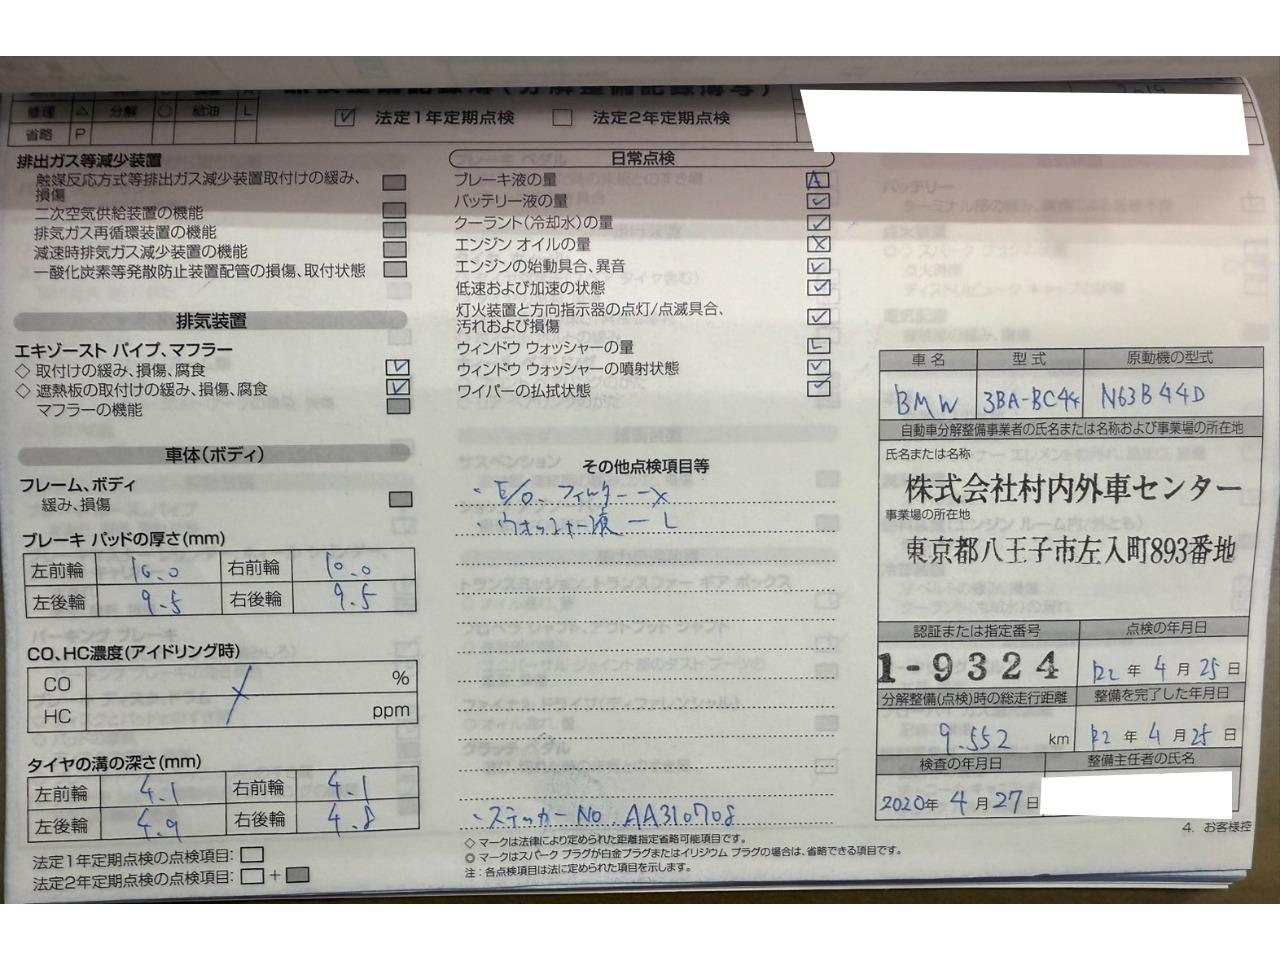 点検整備記録簿(分解整備記録簿写)
修理 △ 分解 ○ 給油 L
省略 P
☑ 法定1年定期点検 □ 法定2年定期点検
排出ガス等減少装置
触媒反応方式等排出ガス減少装置取付けの緩み、
損傷
二次空気供給装置の機能
排気ガス再循環装置の機能
減速時排気ガス減少装置の機能
一酸化炭素等発散防止装置配管の損傷、取付状態
排気装置
エキゾースト パイプ、マフラー
◇ 取付けの緩み、損傷、腐食 ✓
◇ 遮熱板の取付けの緩み、損傷、腐食 ✓
マフラーの機能
車体(ボディ)
フレーム、ボディ
緩み、損傷
ブレーキ パッドの厚さ(mm)
左前輪 10.0 右前輪 10.0
左後輪 9.5 右後輪 9.5
CO、HC濃度(アイドリング時)
CO %
HC ppm
タイヤの溝の深さ(mm)
左前輪 4.1 右前輪 4.1
左後輪 4.9 右後輪 4.8
法定1年定期点検の点検項目: □
法定2年定期点検の点検項目: □ + ■
日常点検
ブレーキ液の量 A
バッテリー液の量 ✓
クーラント(冷却水)の量 ✓
エンジン オイルの量 X
エンジンの始動具合、異音 ✓
低速および加速の状態 ✓
灯火装置と方向指示器の点灯/点滅具合、
汚れおよび損傷 ✓
ウィンドウ ウォッシャーの量 L
ウィンドウ ウォッシャーの噴射状態 ✓
ワイパーの払拭状態 ✓
その他点検項目等
・E/O、フィルター ーX
・ウォッシャー液 ー L
・ステッカーNO. AA310708
◇ マークは法律により定められた距離指定省略可能項目です。
◎ マークはスパーク プラグが白金プラグまたはイリジウム プラグの場合は、省略できる項目です。
注:各点検項目は法に定められた項目を示します。
車名 型式 原動機の型式
BMW 3BA-BC44 N63B44D
自動車分解整備事業者の氏名または名称および事業場の所在地
氏名または名称
株式会社村内外車センター
事業場の所在地
東京都八王子市左入町893番地
認証または指定番号 点検の年月日
1-9324 R2 年 4 月 25 日
分解整備(点検)時の総走行距離 整備を完了した年月日
9.552 km R2 年 4 月 25 日
検査の年月日 整備主任者の氏名
2020年 4 月 27 日
4. お客様控